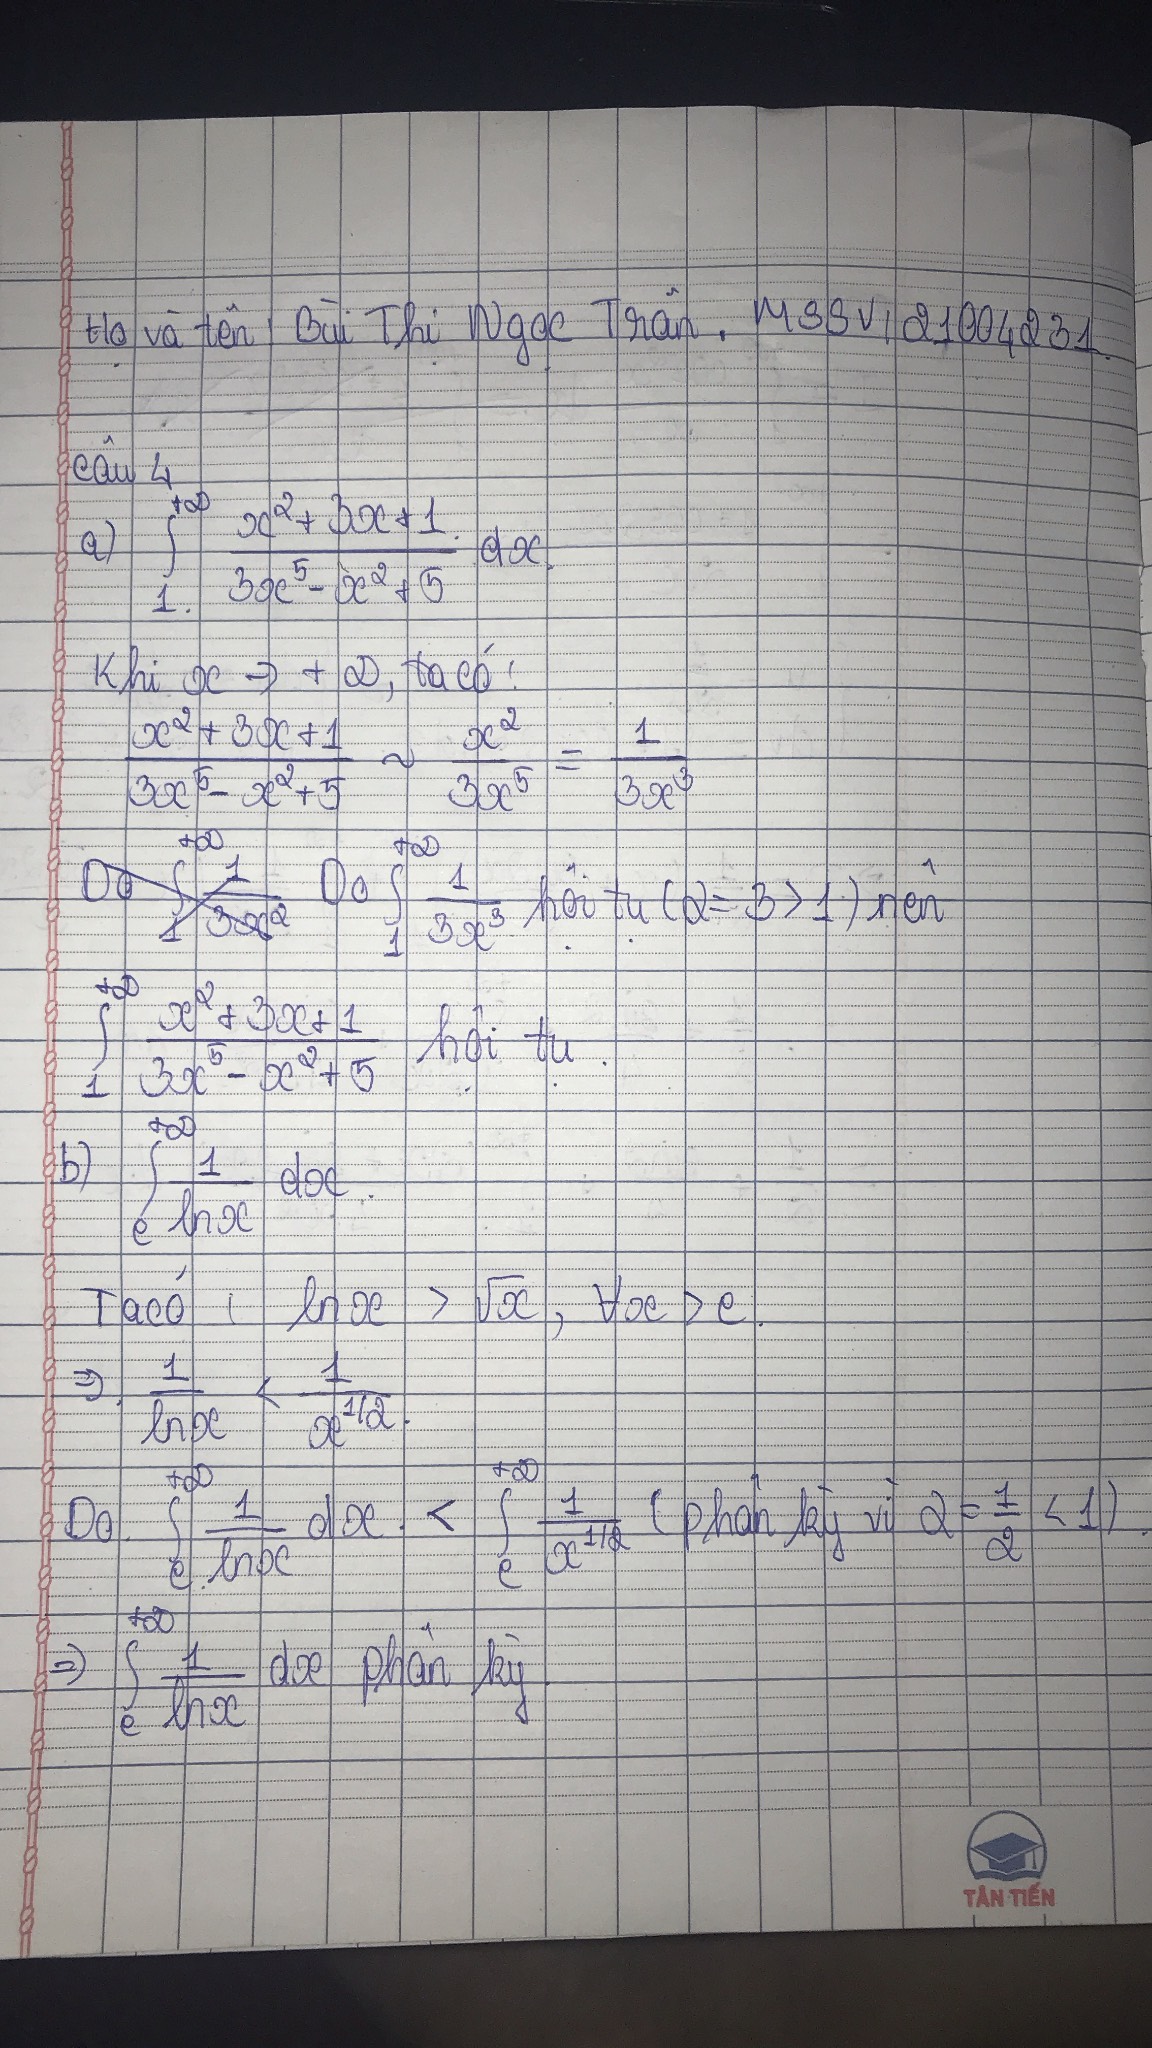 Họ và tên: Bùi Thi Ngọc Trân. MSSV: 21004231.
Câu 4
a) ∫₁^{+∞} (x² + 3x + 1)/(3x⁵ - x² + 5) dx.
Khi x → +∞, ta có:
(x² + 3x + 1)/(3x⁵ - x² + 5) ~ x²/(3x⁵) = 1/(3x³)
Do ∫₁^{+∞} 1/(3x²) Do ∫₁^{+∞} 1/(3x³) hội tụ (α = 3 > 1) nên
∫₁^{+∞} (x² + 3x + 1)/(3x⁵ - x² + 5) hội tụ.
b) ∫ₑ^{+∞} 1/(ln x) dx.
Ta có: ln x > √x, ∀x > e.
⇒ 1/(ln x) < 1/(x^{1/2}).
Do ∫ₑ^{+∞} 1/(ln x) dx < ∫ₑ^{+∞} 1/(x^{1/2}) (phân kỳ vì α = 1/2 < 1).
⇒ ∫ₑ^{+∞} 1/(ln x) dx phân kỳ
TÂN TIẾN